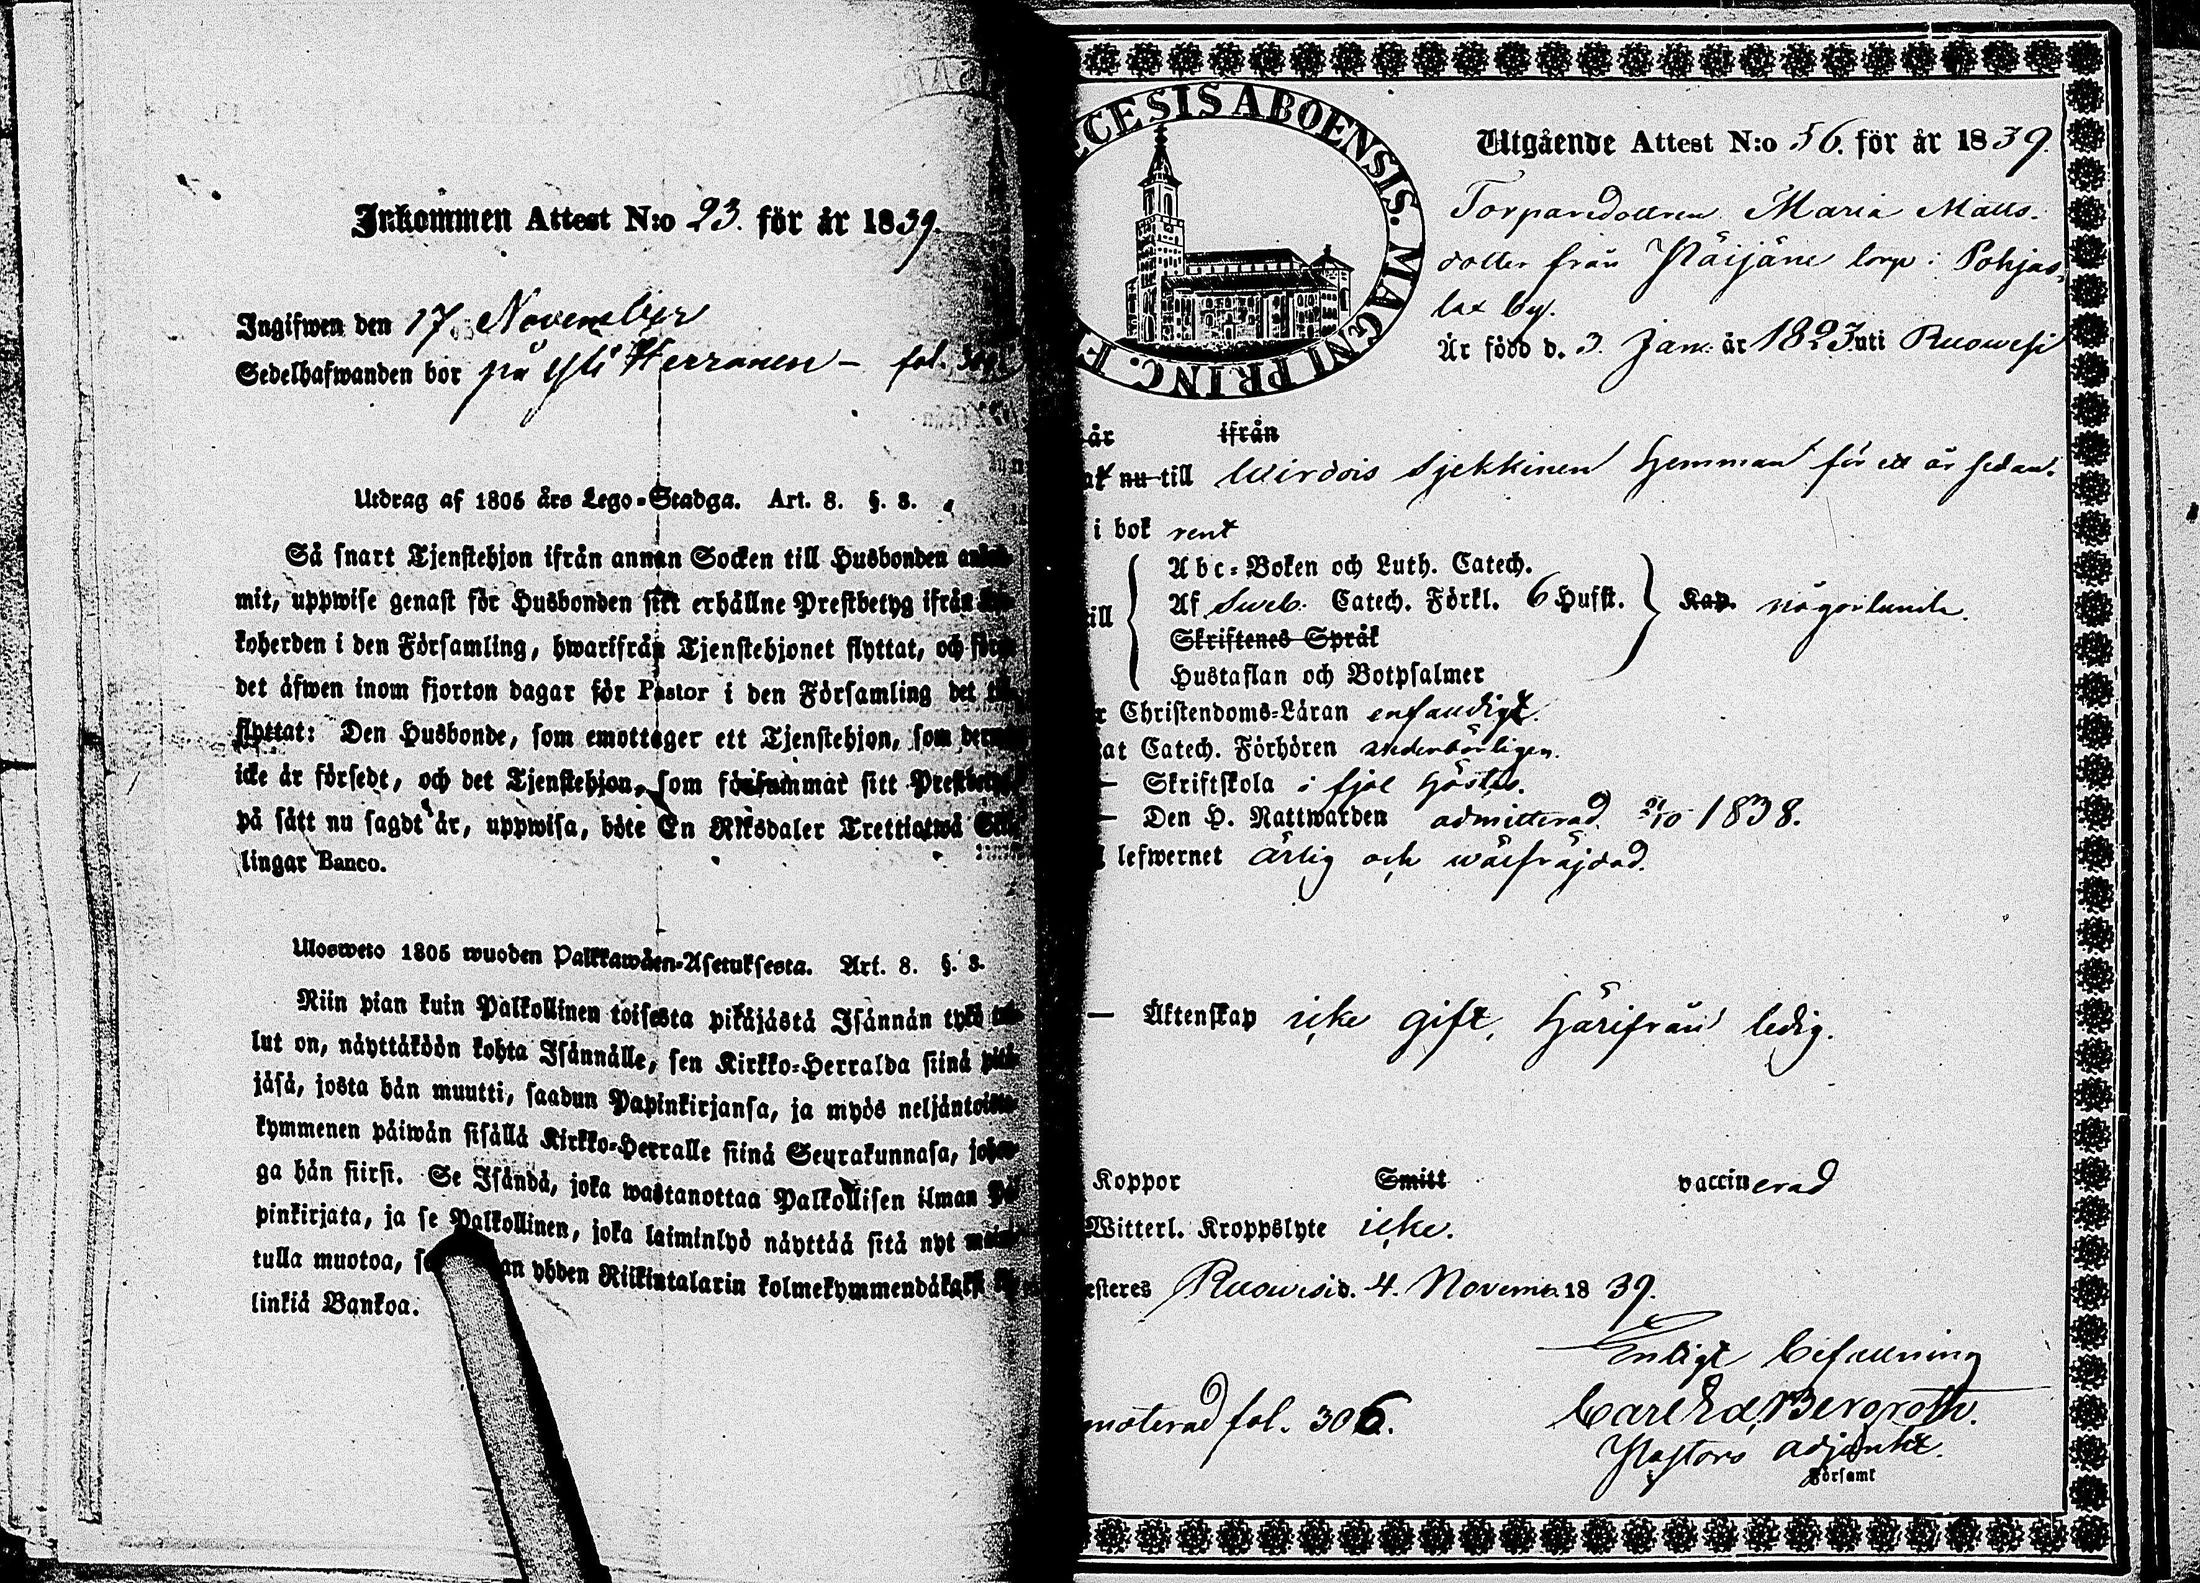 Inkommen Attest N:o 23. för år 1839.
Ingifwen den 17. November
Sedelhafwanden bor på Yli Herranen – fol.
Utdrag af 1805 års Lego-Stadga. Art. 8. §. 8.
Så snart Tjenstehjon ifrån annan Socken till Husbonden
mit, uppwise genast för Husbonden sitt erhållne Prestbetyg ifrån
koherden i den Församling, hwarifrån Tjenstehjonet flyttat, och
det äfwen inom fjorton dagar för Pastor i den Församling det
flyttat: Den Husbonde, som emottager ett Tjenstehjon, som
icke är försedt, och det Tjenstehjon, som försummar sitt
på sätt nu sagdt är, uppwisa, böte En Riksdaler Trettiotwå
lingar Banco.
Ulosweto 1805 wuoden Palkkawäen-Asetuksesta. Art. 8. §. 8.
Niin pian kuin Palkollinen toisesta pitäjästä Isännän tykö
lut on, näyttäköön kohta Isännälle, sen Kirkko-Herralda siinä
jäsä, josta hän muutti, saadun Papinkirjansa, ja myös
kymmenen päiwän sisällä Kirkko-Herralle siinä Seurakunnasa,
ga hän siirsi. Se Isändä, joka wastanottaa Palkollisen ilman
pinkirjata, ja se Palkollinen, joka laiminlyö näyttää sitä nyt
tulla muotoa, yhden Riikintalarin
linkiä Bankoa.
CESIS ABOENSIS. MAGNI PRINC. F
Utgående Attest N:o 56. för år 1839.
Torparedottren Maria Matts-
dotter från Päijäne torp i Pohjas-
lax by.
Är född d. 3. Jan. år 1823 uti Ruowesi
är ifrån
nu till Wirdois Sjekkinen Hemman för ett år sedan.
i bok rent
Abc-Boken och Luth. Catech.
Af Sweb. Catech. Förkl. 6 Hufst. Kap. någorlunda.
ill
Skriftenes Språk
Hustaflan och Botpsalmer
r Christendoms-Läran enfaldigt.
at Catech. Förhören wederbörligen.
– Skriftskola i fjol höstas.
– Den H. Nattwarden admitterad 21/10 1838.
lefwernet ärlig och wälfräjdad.
– Äktenskap icke gift, härifrån ledig.
Koppor Smitt vaccinerad
Witterl. Kroppslyte icke.
esteres Ruowesi d. 4. Novemb. 1839.
Enligt befallning
Carl Ed. Bergroth.
noterad fol. 306.
Pastors adjunkt.
Församl